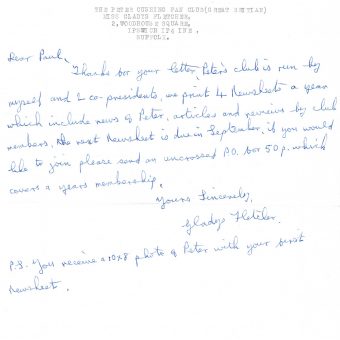 THE PETER CUSHING FAN CLUB(GREAT BRITIAN)
MISS GLADYS FLETCHER,
2, WOODHOUSE SQUARE,
IPSWICH IP4
SUFFOLK.
Dear Paul,
Thanks for your letter, Peter's club is run by
myself and 2 co-presidents, we print 4 Newsheets a year
which include news of Peter, articles and reviews by club
members, the next Newsheet is due in September, if you would
like to join please send an uncrossed P.O. for 50p. which
covers a years membership.
Yours Sincerely,
Gladys Fletcher.
P.S. You receive a 10x8 photo of Peter with your first
Newsheet.